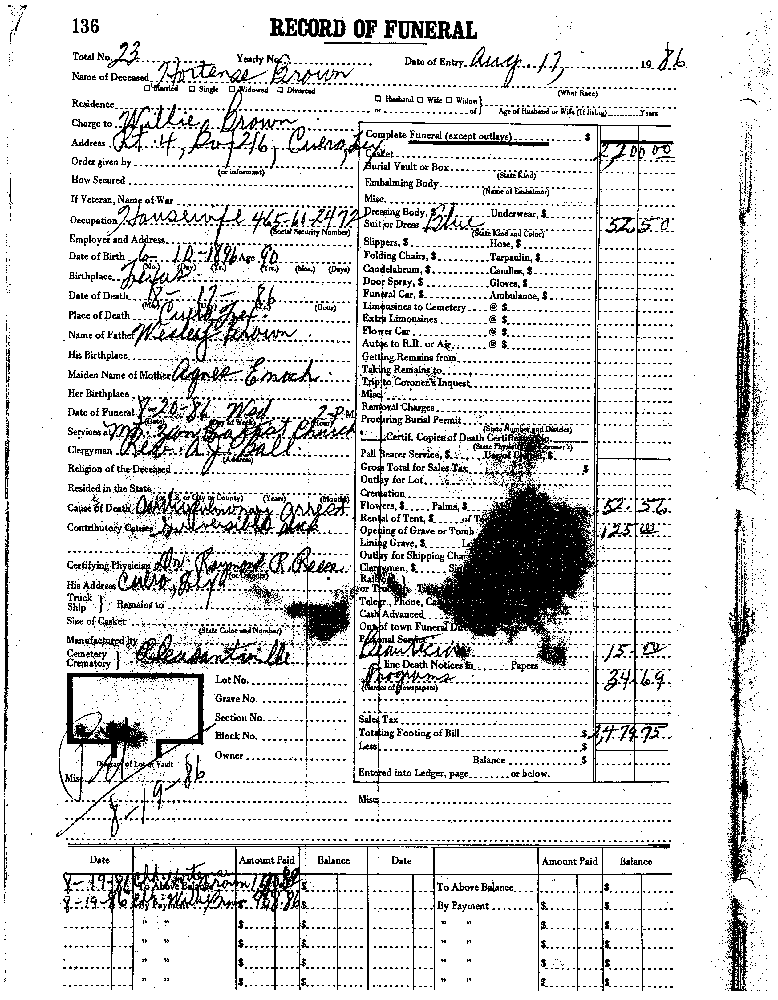 136
RECORD OF FUNERAL
Total No. 23 Yearly No. Date of Entry Aug. 17, 1986
Name of Deceased Hortense Brown
Married Single Widowed Divorced (What Race)
Residence Husband Wife Widow or of Age of Husband or Wife (if living) Years
Charge to Willie Brown
Address Rt. 4, Box 216, Cuero, Tex
Order given by
(or informant)
How Secured
If Veteran, Name of War
Occupation Housewife 465-61-2472
(Social Security Number)
Employer and Address
Date of Birth 10-1896 Age 90
(Mo.) (Day) (Yr.) (Yrs.) (Mos.) (Days)
Birthplace Texas
Date of Death 8-17-86
(Hour)
Place of Death Cuero Tex.
Name of Father Wesley Brown
His Birthplace
Maiden Name of Mother Agnes Enoch
Her Birthplace
Date of Funeral 8-20-86 Wed 2 P.M.
Services at Mt. Zion Baptist Church
Clergyman Rev. A. J. Ball
(Address)
Religion of the Deceased
Resided in the State
(U.S. or City or County) (Years) (Months)
Cause of Death Cardiopulmonary arrest
Contributory Causes Irreversible
Certifying Physician Dr. Raymond R. Reese
(or Coroner)
His Address Cuero, Tex
Truck Ship } Remains to
Size of Casket
(State Color and Number)
Manufactured by
Cemetery Crematory } Pleasantville
Lot No.
Grave No.
Section No.
Block No.
Owner
Diagram of Lot or Vault
Misc.
8-19-86
Complete Funeral (except outlays) $
Casket 2200 00
Burial Vault or Box
(State Kind)
Embalming Body
(Name of Embalmer)
Misc.
Dressing Body, $ Underwear, $
Suit or Dress Blue 52.50
(State Kind and Color)
Slippers, $ Hose, $
Folding Chairs, $ Tarpaulin, $
Candelabrum, $ Candles, $
Door Spray, $ Gloves, $
Funeral Car, $ Ambulance, $
Limousines to Cemetery @ $
Extra Limousines @ $
Flower Car @ $
Autos to R.R. or Air @ $
Getting Remains from
Taking Remains to
Trip to Coroner's Inquest
Misc.
Removal Charges
Procuring Burial Permit
(State Number and District)
Certif. Copies of Death Certificate
Pall Bearer Service, $
Gross Total for Sales Tax $
Outlay for Lot
Cremation
Flowers, $ Palms, $ 52.56
Rental of Tent, $ of T
Opening of Grave or Tomb 125.00
Lining Grave, $
Outlay for Shipping Char
Clergymen, $
Telegr., Phone, Ca
Cash Advanced
Out of town Funeral D
Personal Service
Beautician 15.00
line Death Notices in Papers
Programs 34.69
(Names of Newspapers)
Sales Tax
Totaling Footing of Bill $ 2,479.75
Less
Balance $
Entered into Ledger, page or below.
Misc.
Date Amount Paid Balance Date Amount Paid Balance
8-19-86 To Above Balance $ To Above Balance $
8-19-86 By Payment $ By Payment $ $
" " $ $ " " $ $
" " $ $ " " $ $
" " $ $ " " $ $
" " $ $ " " $ $